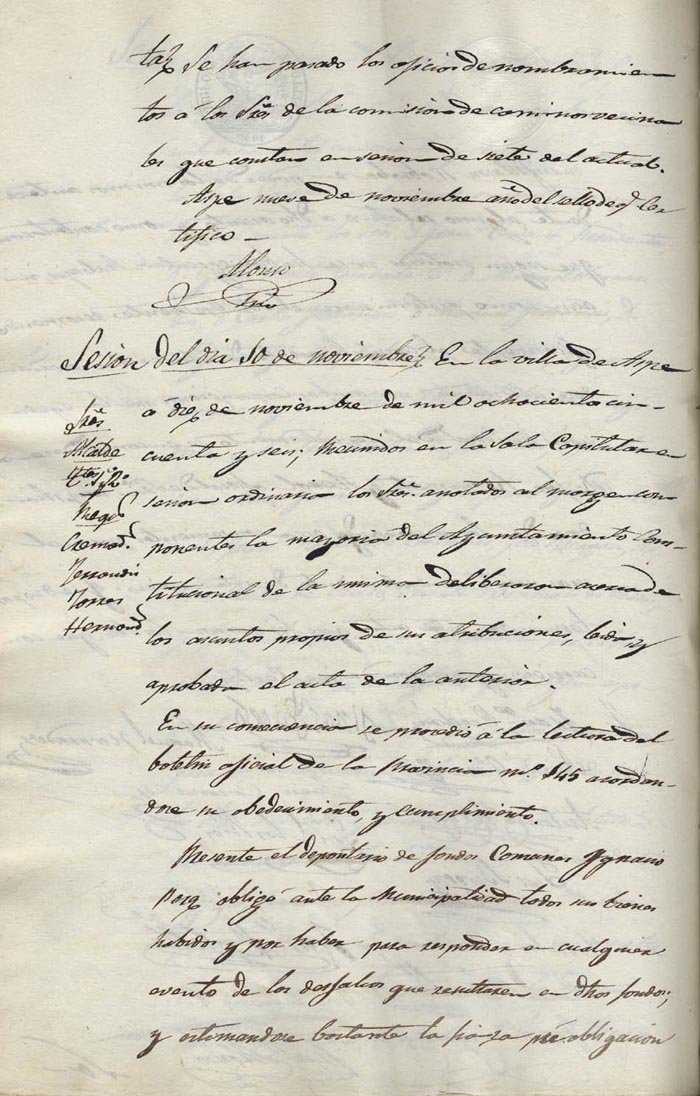 taz Se han pasado los oficios de nombramien
tos á los Sres de la comision de caminos vecina
les que constan en sesion de siete del actual.
Aspe nueve de noviembre año del sello de q.e cer
tifico —
Alonso
Srio
Sesion del dia 10 de noviembre En la villa de Aspe
á diez de noviembre de mil ochocientos cin-
cuenta y seis; reunidos en la Sala Capitular en
sesion ordinaria los Sres. anotados al margen com
ponentes la mayoria del Ayuntamiento Cons-
titucional de la misma deliberaron acerca de
los asuntos propios de sus atribuciones, leida y
aprobada el acta de la anterior.
Sres
Alcalde
Ttes 1º y 2º
Regs
Cremads
Terrandis
Torres
Hernands
En su consecuencia se procedió á la lectura del
boletin oficial de la Provincia nº. 145 acordan-
dose su obedecimiento, y cumplimiento.
Presente el depositario de fondos Comunes Ygnacio
obligó ante la Municipalidad todos sus bienes
habidos y por haber para responder en cualquier
evento de los desfalcos que resultasen en dhos fondos;
y estimandose bastante la fianza pré. obligacion